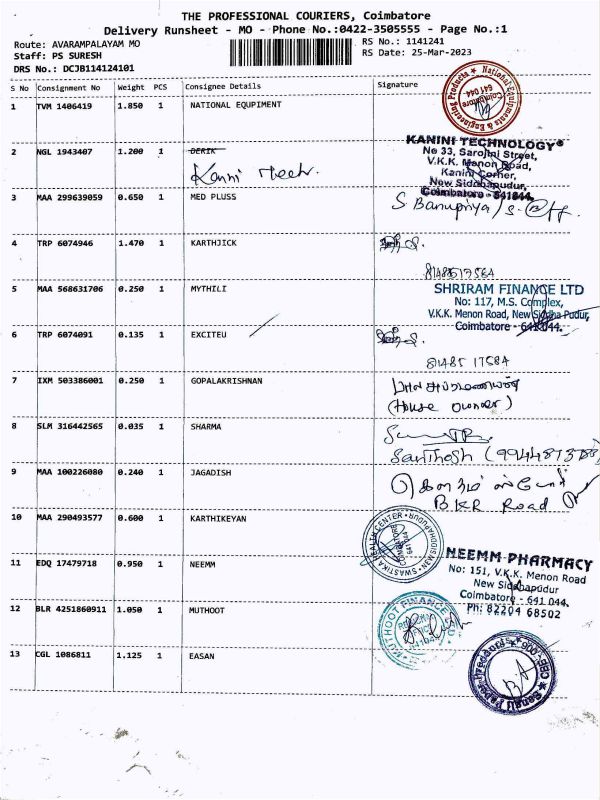 THE PROFESSIONAL COURIERS, Coimbatore
Delivery Runsheet - MO - Phone No.:0422-3505555 - Page No.:1
Route: AVARAMPALAYAM MO
RS No.: 1141241
Staff: PS SURESH
RS Date: 25-Mar-2023
DRS No.: DCJB114124101
S No Consignment No Weight PCS Consignee Details Signature
1 TVM 1406419 1.850 1 NATIONAL EQUPIMENT
National Equipments & Engineering Products
Coimbatore 641 044
2 NGL 1943407 1.200 1 DERIK
Kanni Tech.
KANINI TECHNOLOGY
No 33, Sarojini Street,
V.K.K. Menon Road,
Kanini Corner,
New Siddhapudur,
Coimbatore - 641044.
3 MAA 299639059 0.650 1 MED PLUSS
S Banupriya
4 TRP 6074946 1.470 1 KARTHJICK
8148517564
5 MAA 568631706 0.250 1 MYTHILI
SHRIRAM FINANCE LTD
No: 117, M.S. Complex,
V.K.K. Menon Road, New Siddha Pudur,
Coimbatore - 641 044.
6 TRP 6074091 0.135 1 EXCITEU
81485 17584
7 IXM 503386001 0.250 1 GOPALAKRISHNAN
(House owner)
8 SLM 316442565 0.035 1 SHARMA
Santhosh
9 MAA 100226080 0.240 1 JAGADISH
BKR Road
10 MAA 290493577 0.600 1 KARTHIKEYAN
SWASTIKA HEALTH CENTER
COIMBATORE
11 EDQ 17479718 0.950 1 NEEMM
NEEMM PHARMACY
No: 151, V.K.K. Menon Road
New Siddhapudur
Coimbatore - 641 044.
Ph: 82204 68502
12 BLR 4251860911 1.050 1 MUTHOOT
MUTHOOT FINANCE LTD
13 CGL 1086811 1.125 1 EASAN